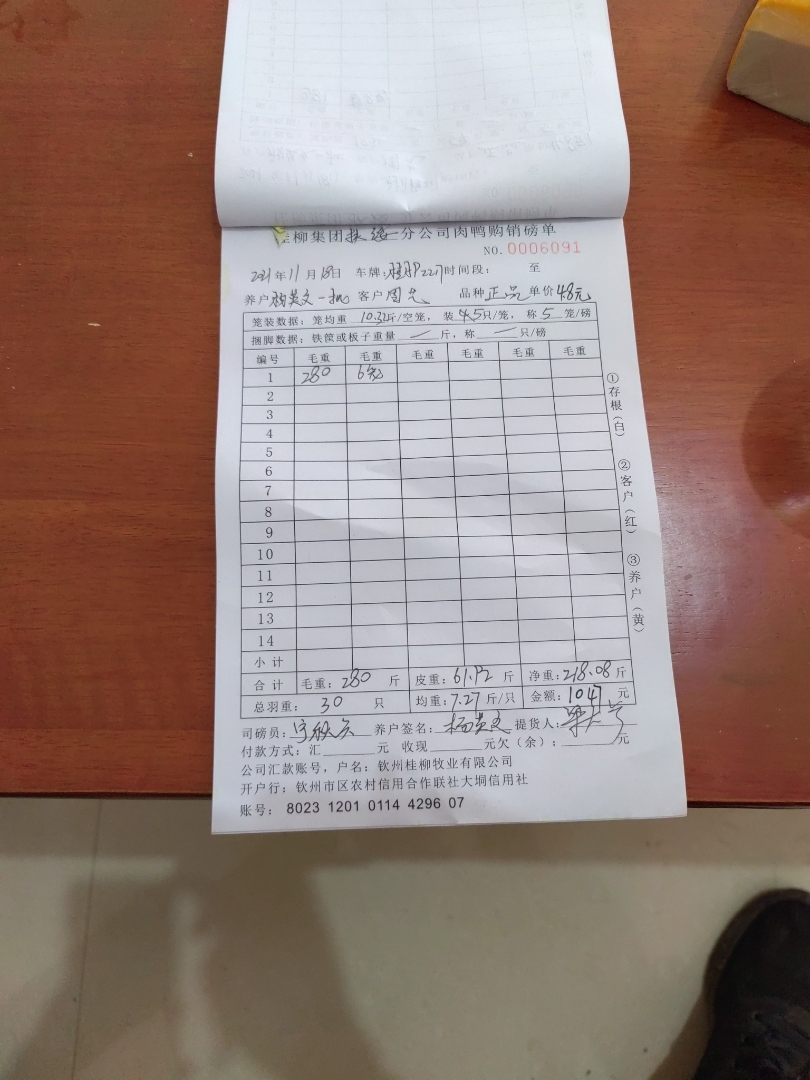 桂柳集团扶绥分公司肉鸭购销磅单
NO.0006091
2021年11月18日 车牌: 时间段: 至
养户 客户 周光 品种 正品 单价 4.8元
笼装数据：笼均重 斤/空笼，装 只/笼，称 5 笼/磅
捆脚数据：铁筐或板子重量 — 斤，称 — 只/磅
编号 毛重 毛重 毛重 毛重 毛重 毛重
1 280 6笼
2
3
4
5
6
7
8
9
10
11
12
13
14
小计
合计 毛重：280 斤 皮重：61.92 斤 净重：218.08斤
总羽重： 30 只 均重：7.27斤/只 金额：1047 元
司磅员： 养户签名： 提货人：
付款方式：汇 元 收现 元欠（余）： 元
公司汇款账号，户名：钦州桂柳牧业有限公司
开户行：钦州市区农村信用合作联社大垌信用社
账号： 8023 1201 0114 4296 07
①存根（白）
②客户（红）
③养户（黄）